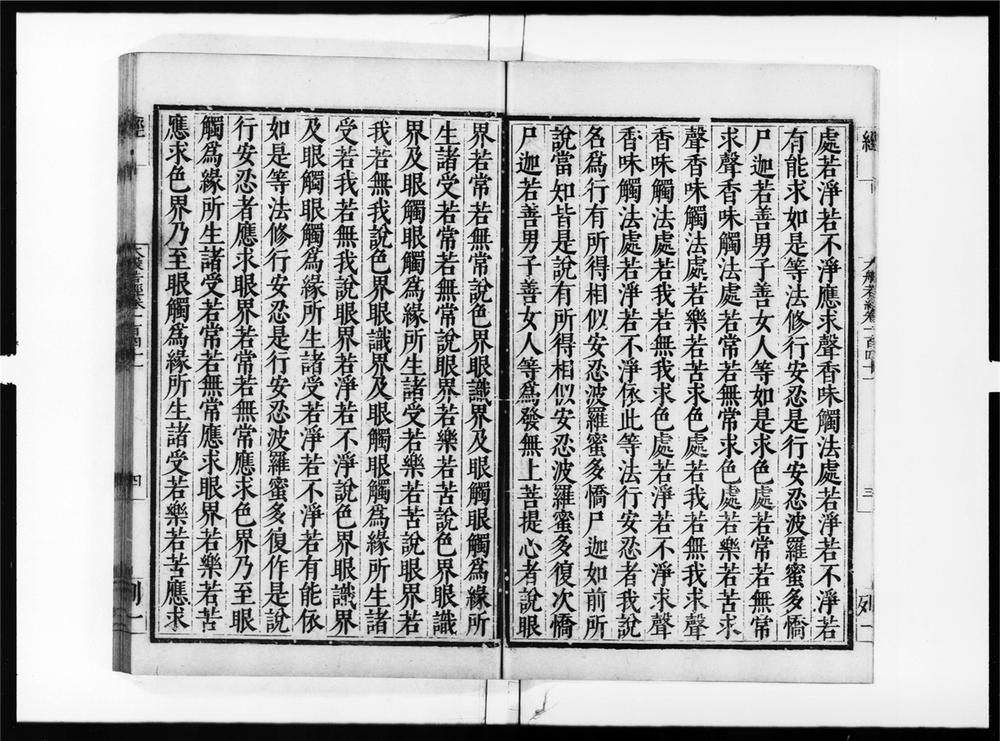 經
大般若經卷一百四十一
三
列一
處若淨若不淨應求聲香味觸法處若淨若不淨若
有能求如是等法修行安忍是行安忍波羅蜜多憍
尸迦若善男子善女人等如是求色處若常若無常
求聲香味觸法處若常若無常求色處若樂若苦求
聲香味觸法處若樂若苦求色處若我若無我求聲
香味觸法處若我若無我求色處若淨若不淨求聲
香味觸法處若淨若不淨依此等法行安忍者我說
名爲行有所得相似安忍波羅蜜多憍尸迦如前所
說當如皆是說有所得相似安忍波羅蜜多復次憍
尸迦若善男子善女人等爲發無上菩提心者說眼
界若常若無常說色界眼識界及眼觸眼觸爲緣所
生諸受若常若無常說眼界若樂若苦說色界眼識
界及眼觸眼觸爲緣所生諸受若樂若苦說眼界若
我若無我說色界眼識界及眼觸眼觸爲緣所生諸
受若我若無我說眼界若淨若不淨說色界眼識界
及眼觸眼觸爲緣所生諸受若淨若不淨若有能依
如是等法修行安忍是行安忍波羅蜜多復作是說
行安忍者應求眼界若常若無常應求色界乃至眼
觸爲緣所生諸受若常若無常應求眼界若樂若苦
應求色界乃至眼觸爲緣所生諸受若樂若苦應求
經
大般若經卷一百四十一
四
列一